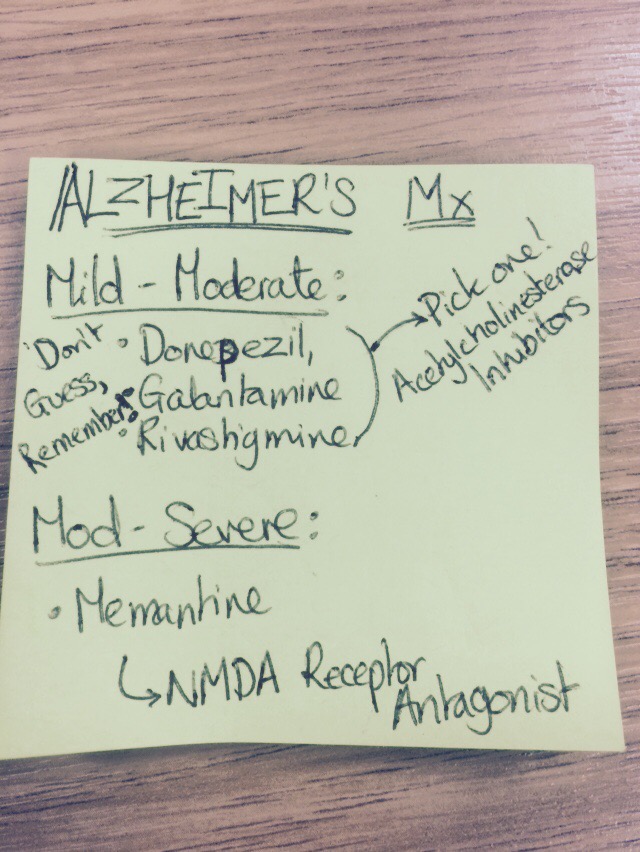 ALZHEIMER'S Mx
Mild - Moderate:
'Don't
Guess,
Remember!'
• Donepezil,
• Galantamine
• Rivastigmine
Pick one!
Acetylcholinesterase
Inhibitors
Mod - Severe:
• Memantine
↳ NMDA Receptor
Antagonist